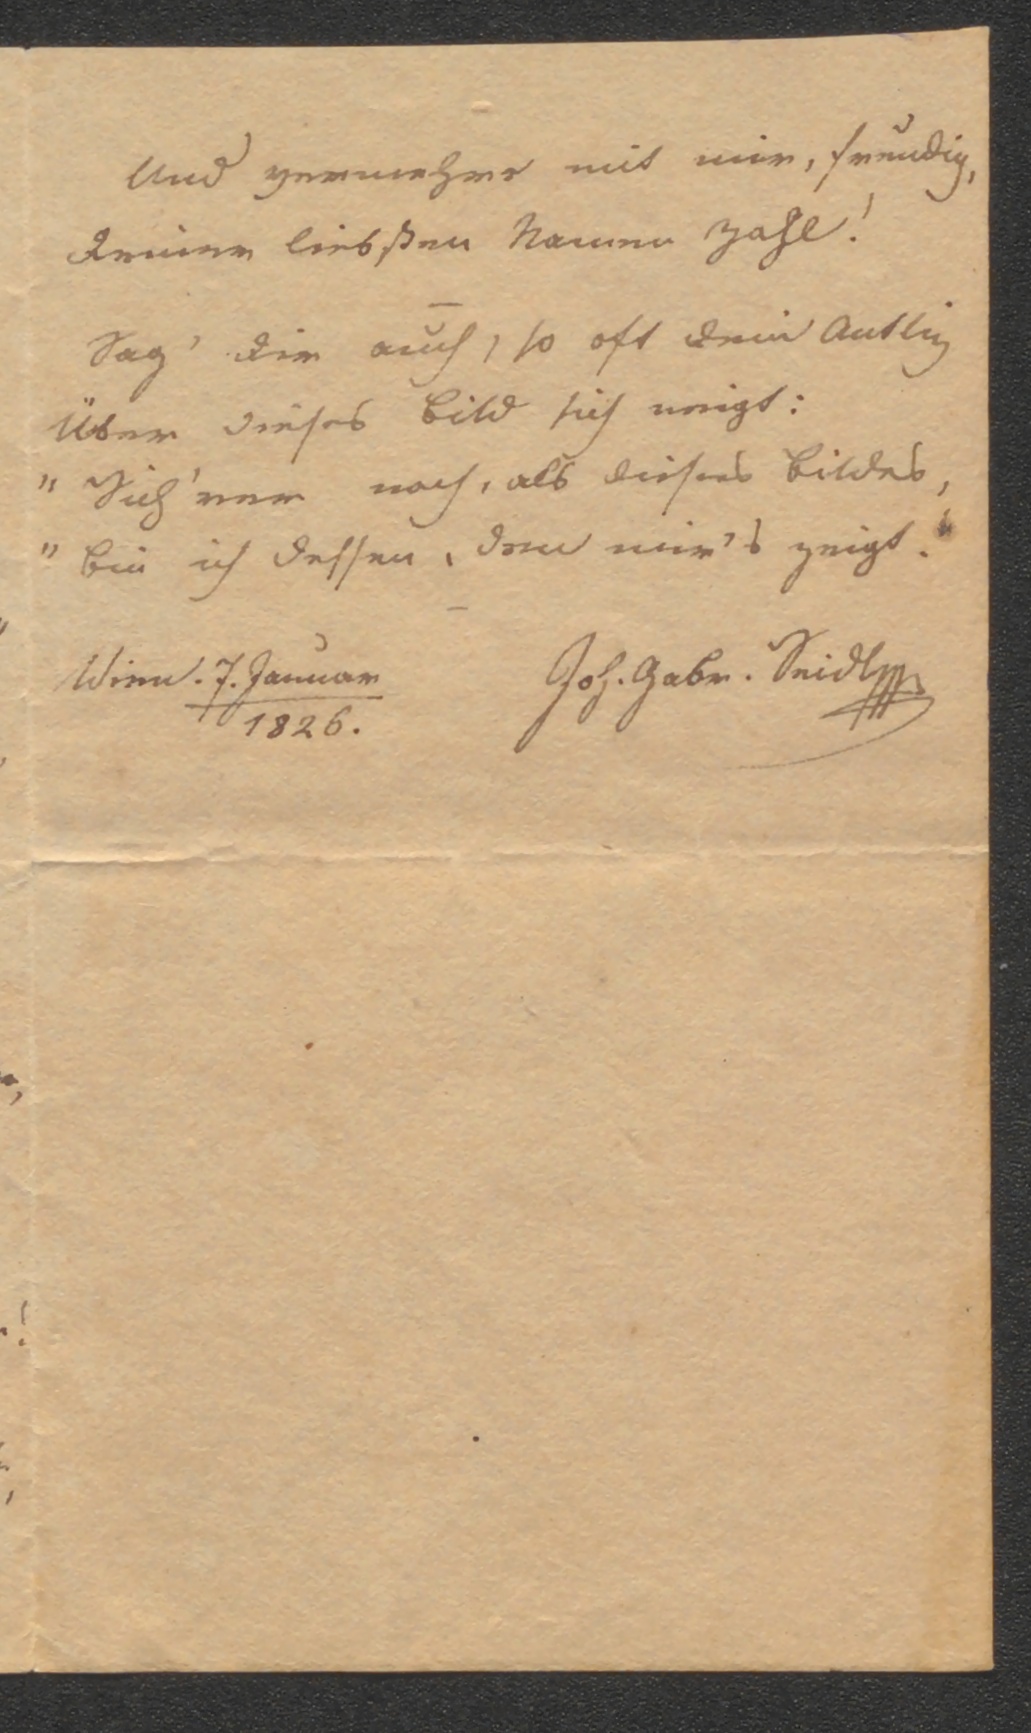 Und vermehre mit mir, freudig,
Deiner liebsten Namen Zahl!
Sag' dir auch, so oft dein Antlitz
Über dieses Bild sich neigt:
"Sich'rer noch, als dieses Bildes,
"Bin ich dessen, dem mir's zeigt."
Wien. 7. Januar
1826.
Joh. Gabr. Seidl